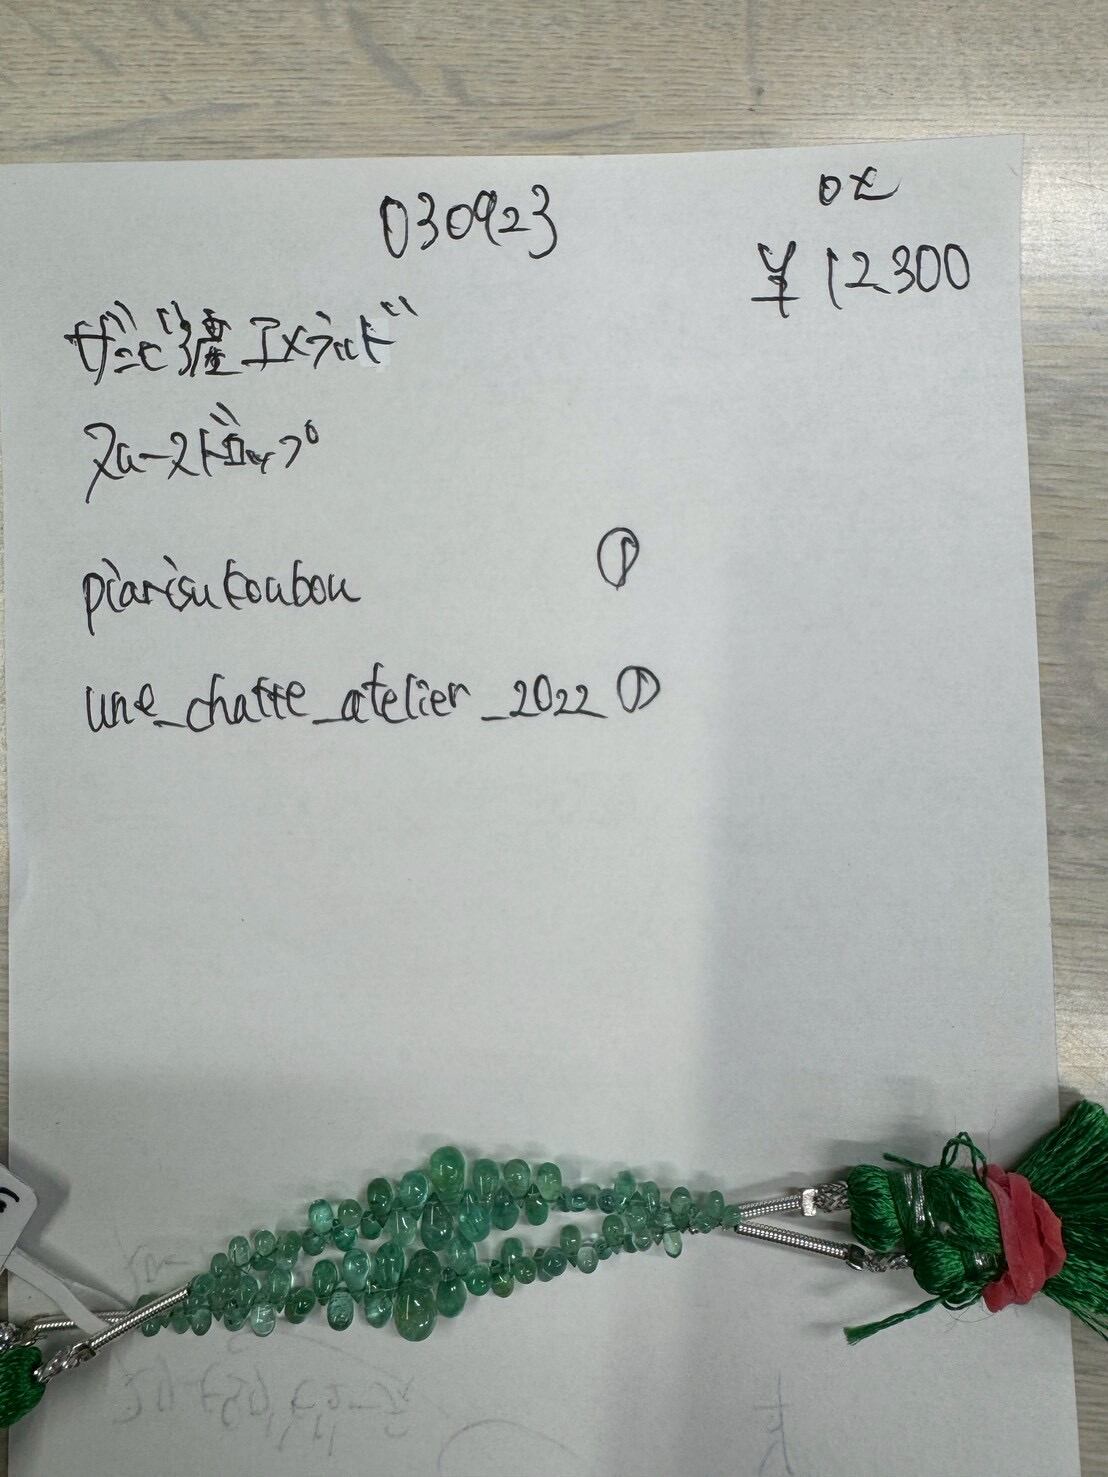 030923
¥12300
ザンビア産エメラルド
スムースドロップ
piarisukoubou ①
une_chatte_atelier_2022 ①